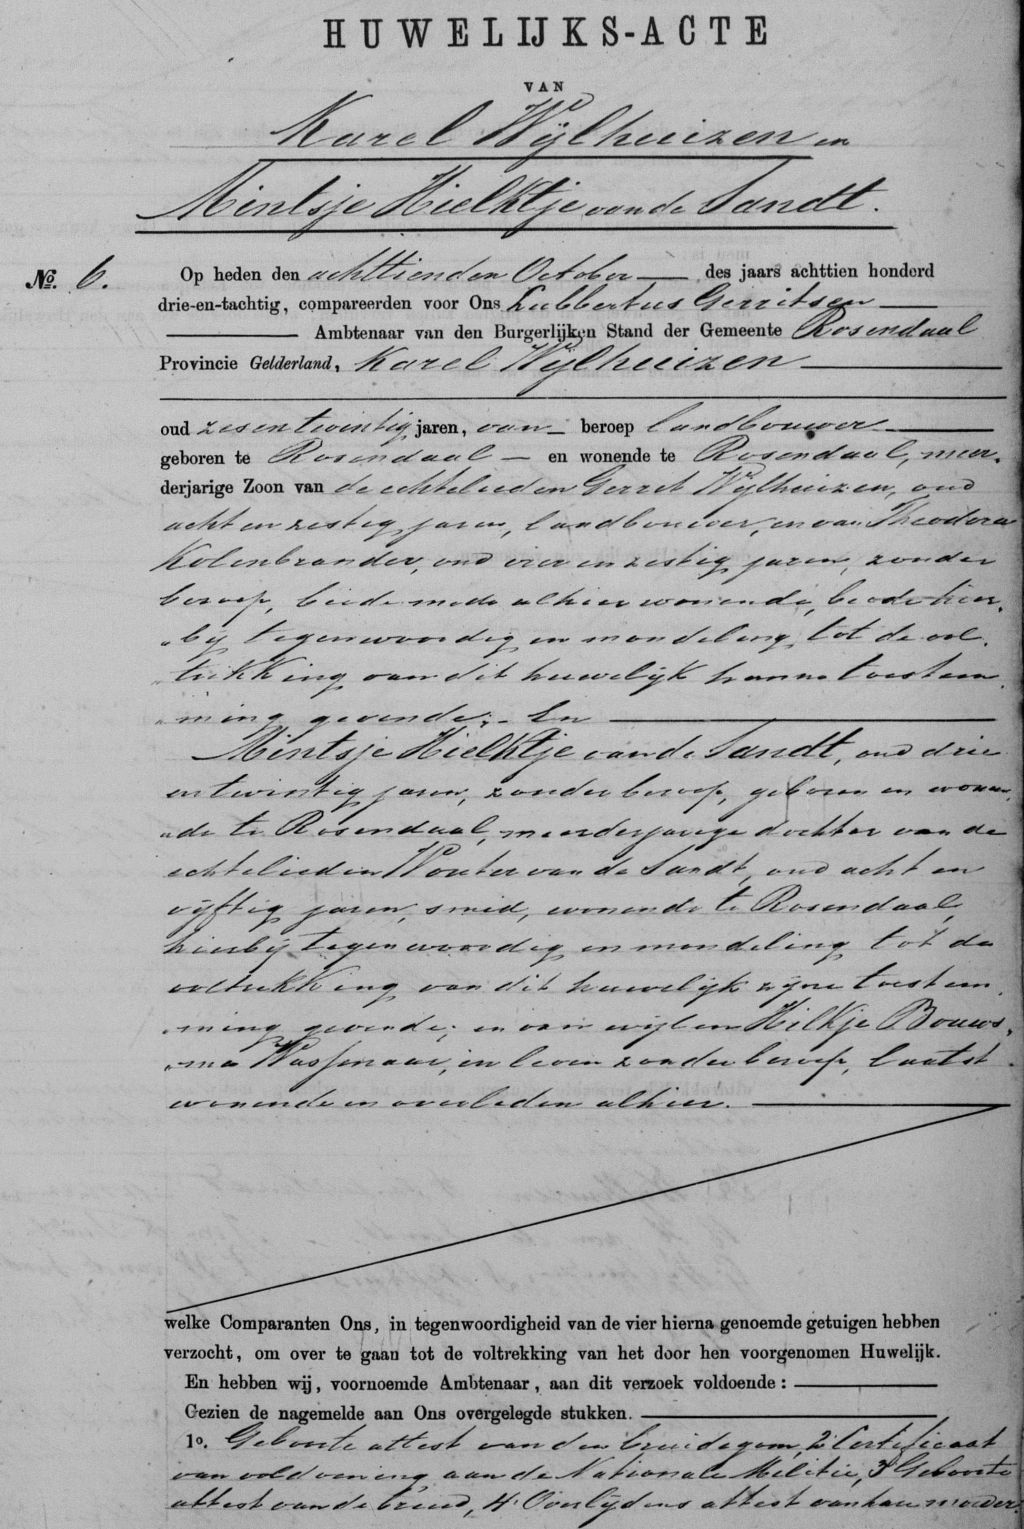 HUWELIJKS-ACTE
VAN
Karel Wijlhuizen en
Mintsje Hielktje van de Sandt.
No. 6. Op heden den achttienden October des jaars achttien honderd
drie-en-tachtig, compareerden voor Ons Lubbertus Gerritsen
Ambtenaar van den Burgerlijken Stand der Gemeente Rosendaal
Provincie Gelderland, Karel Wijlhuizen
oud zesentwintig jaren, van beroep landbouwer
geboren te Rosendaal en wonende te Rosendaal, meer-
derjarige Zoon van de echtelieden Gerret Wijlhuizen, oud
acht en zestig jaren, landbouwer, en van Theodora
Kolenbrander, oud vier en zestig jaren, zonder
beroep, beide mede alhier wonende, beide hier-
"bij tegenwoordig en mondeling tot de vol-
"trekking van dit huwelijk hunne toestem-
"ming gevende; - En
Mintsje Hielktje van de Sandt, oud drie
en twintig jaren, zonder beroep, geboren en wonen-
"de te Rosendaal, meerderjarige dochter van de
echtelieden Wouter van de Sandt, oud acht en
vijftig jaren, smid, wonende te Rosendaal,
hierbij tegenwoordig en mondeling tot de
voltrekking van dit huwelijk zijne toestem-
"ming gevende; en van wijlen Hilkje Bouws-
"ma Wassenaar, in leven zonder beroep, laatst
wonende en overleden alhier.
welke Comparanten Ons, in tegenwoordigheid van de vier hierna genoemde getuigen hebben
verzocht, om over te gaan tot de voltrekking van het door hen voorgenomen Huwelijk.
En hebben wij, voornoemde Ambtenaar, aan dit verzoek voldoende:
Gezien de nagemelde aan Ons overgelegde stukken.
1o. Geboorte attest van den bruidegom, 2o Certificaat
van voldoening aan de Nationale Militie, 3o Geboorte
attest van de bruid, 4o Overlijdens attest van hare moeder.